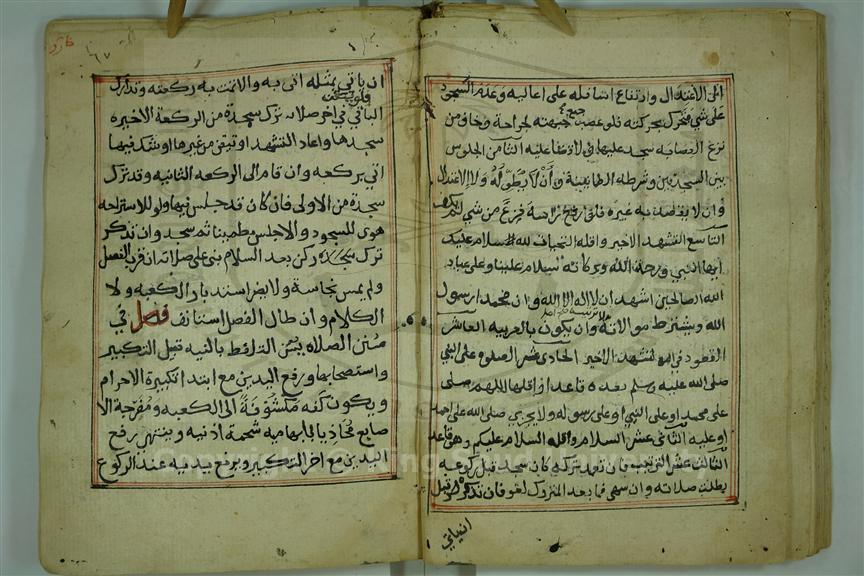 الى الاعتدال وارتفاع اسافله على اعاليه وعدم السجود
على شي متحرك بحركته فلو عصب جميع جبهته لجراحة وخاف من
نزع العصابة سجد عليها ولا قضا عليه الثامن الجلوس
بين السجدتين وشرطه الطمانينة وأن لا يطوله ولا الاعتدال
وان لا يقصد به غيره فلو رفع راسه فزعا من شي لم يكف
التاسع التشهد الاخير واقله التحيات لله السلام عليك
أيها النبي ورحمة الله وبركاته سلام علينا وعلى عباد
الله الصالحين اشهد ان لا اله الا الله وان محمدا رسول
الله ويشترط موالاته وان يكون بالعربيه العاشر
القعود في التشهد الاخير الحادي عشر الصلوه على النبي
صلى الله عليه وسلم بعده قاعدا واقلها اللهم صلى
على محمد او على النبي او على رسوله ولا يجزي صلى الله على احمد
او عليه الثاني عشر السلام واقله السلام عليكم وهو قاعد
الثالث عشر الترتيب فان تعمد تركه كان سجد قبل ركوعه
بطلت صلاته وان سهى فما بعد المتروك لغو فان تذكره قبل
انياتي
ان ياتي بمثله اتى به والا تمت به ركعته وتدارك
الباقي فلو تيقن في اخر صلاته ترك سجدة من الركعة الاخيره
سجدها واعاد التشهد او تيقن من غيرها او شك فيها
اتى بركعه وان قام الى الركعه الثانيه وقد ترك
سجدة من الاولى فان كان قد جلس فيها ولو للاستراحه
هوى للسجود والا جلس مطمينا ثم سجد وان تذكر
ترك ركن بعد السلام بنى على صلاته ان قرب الفصل
ولم يمس نجاسة ولا يضر استدبار الكعبه ولا
الكلام وان طال الفصل استانف فصل في
سنن الصلاه يسن التلفظ بالنيه قبل التكبير
واستصحابها ورفع اليدين مع ابتدا تكبيرة الاحرام
ويكون كفه مكشوفة الى الكعبه ومفرجة الا
صابع محاذيا بابهاميه شحمة اذنيه وينتهي رفع
اليدين مع اخر التكبير ويرفع يديه عند الركوع